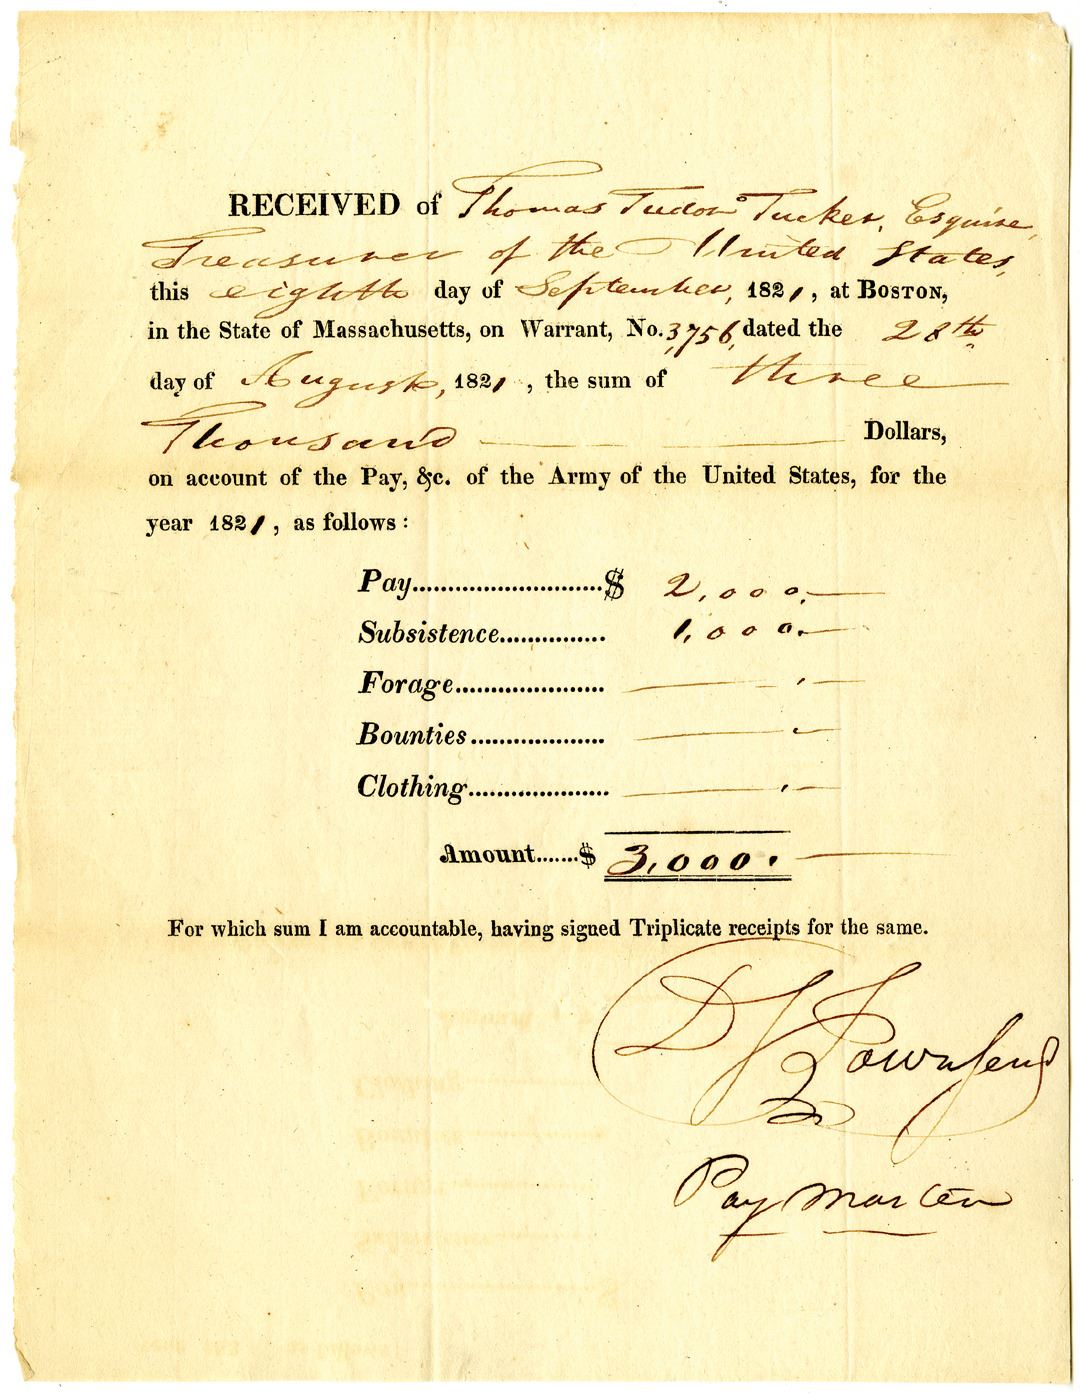 RECEIVED of Thomas Tudor Tucker, Esquire,
Treasurer of the United States,
this eighth day of September, 1821, at BOSTON,
in the State of Massachusetts, on Warrant, No. 3,756, dated the 28th
day of August, 1821, the sum of three
Thousand Dollars,
on account of the Pay, &c. of the Army of the United States, for the
year 1821, as follows:
Pay..........................$ 2,000.
Subsistence............... 1,000.
Forage.....................
Bounties...................
Clothing....................
Amount.......$ 3,000.
For which sum I am accountable, having signed Triplicate receipts for the same.
D S Townsend
Pay Master